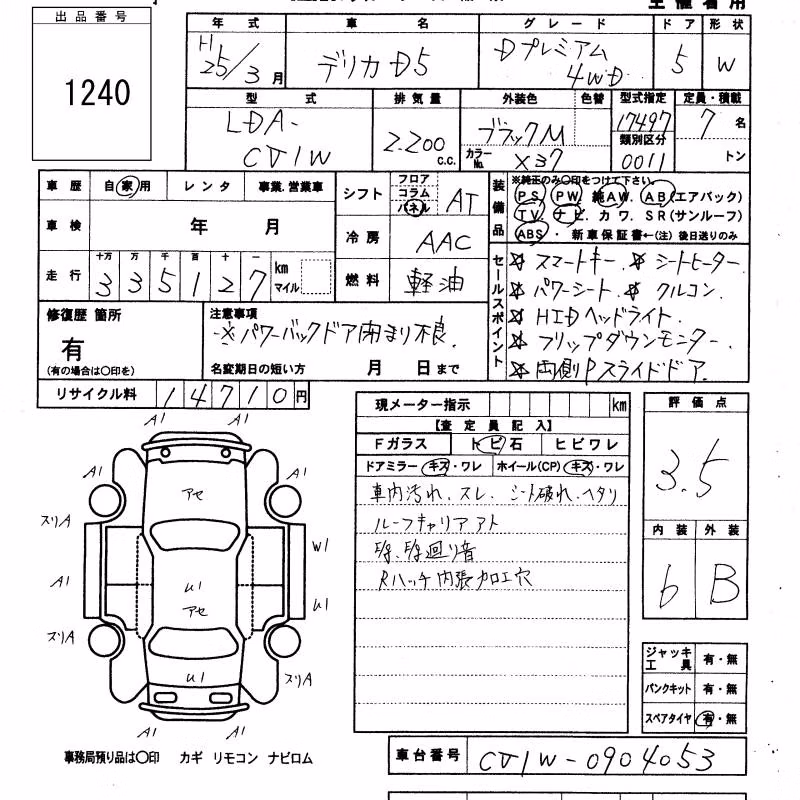 出品番号
1240
年式 車名 グレード ドア 形状
H25/3月 デリカD5 Dプレミアム 4WD 5 W
型式 排気量 外装色 色替 型式指定 定員・積載
LDA-CV1W 2.200c.c. ブラックM 17497 7名
カラーNo. X37 類別区分 0011 トン
車歴 自家用 レンタ 事業.営業車
シフト フロア コラム パネル AT
車検 年 月
冷房 AAC
走行 十万 万 千 百 十 一 335127 km マイル
燃料 軽油
装備品 ※純正のみ〇印をつけて下さい。
PS PW 純AW. AB(エアバック)
TV ナビ. カワ. SR(サンルーフ)
ABS ・ 新車保証書←(注) 後日送りのみ
セールスポイント
☆ スマートキー. ☆ シートヒーター.
☆ パワーシート. ☆ クルコン.
☆ HIDヘッドライト.
☆ フリップダウンモニター.
☆ 両側Pスライドドア.
修復歴 箇所
有
(有の場合は〇印を)
注意事項
※パワーバックドア閉まり不良.
名変期日の短い方 月 日まで
リサイクル料 14710円
現メーター指示 km
【査定員記入】
Fガラス トビ石 ヒビワレ
ドアミラー キズ・ワレ ホイール(CP) キズ・ワレ
車内汚れ. スレ. シート破れ. ヘタリ
ルーフキャリアアト
廻り音
Rハッチ内張加工穴
評価点
3.5
内装 外装
6 B
ジャッキ工具 有・無
パンクキット 有・無
スペアタイヤ 有・無
A1 A1
A1 アセ A1
スリA スリA
A1 W1
U1 U1
アセ
スリA
U1 スリA
A1 A1
事務局預り品は〇印 カギ リモコン ナビロム
車台番号 CV1W-0904053